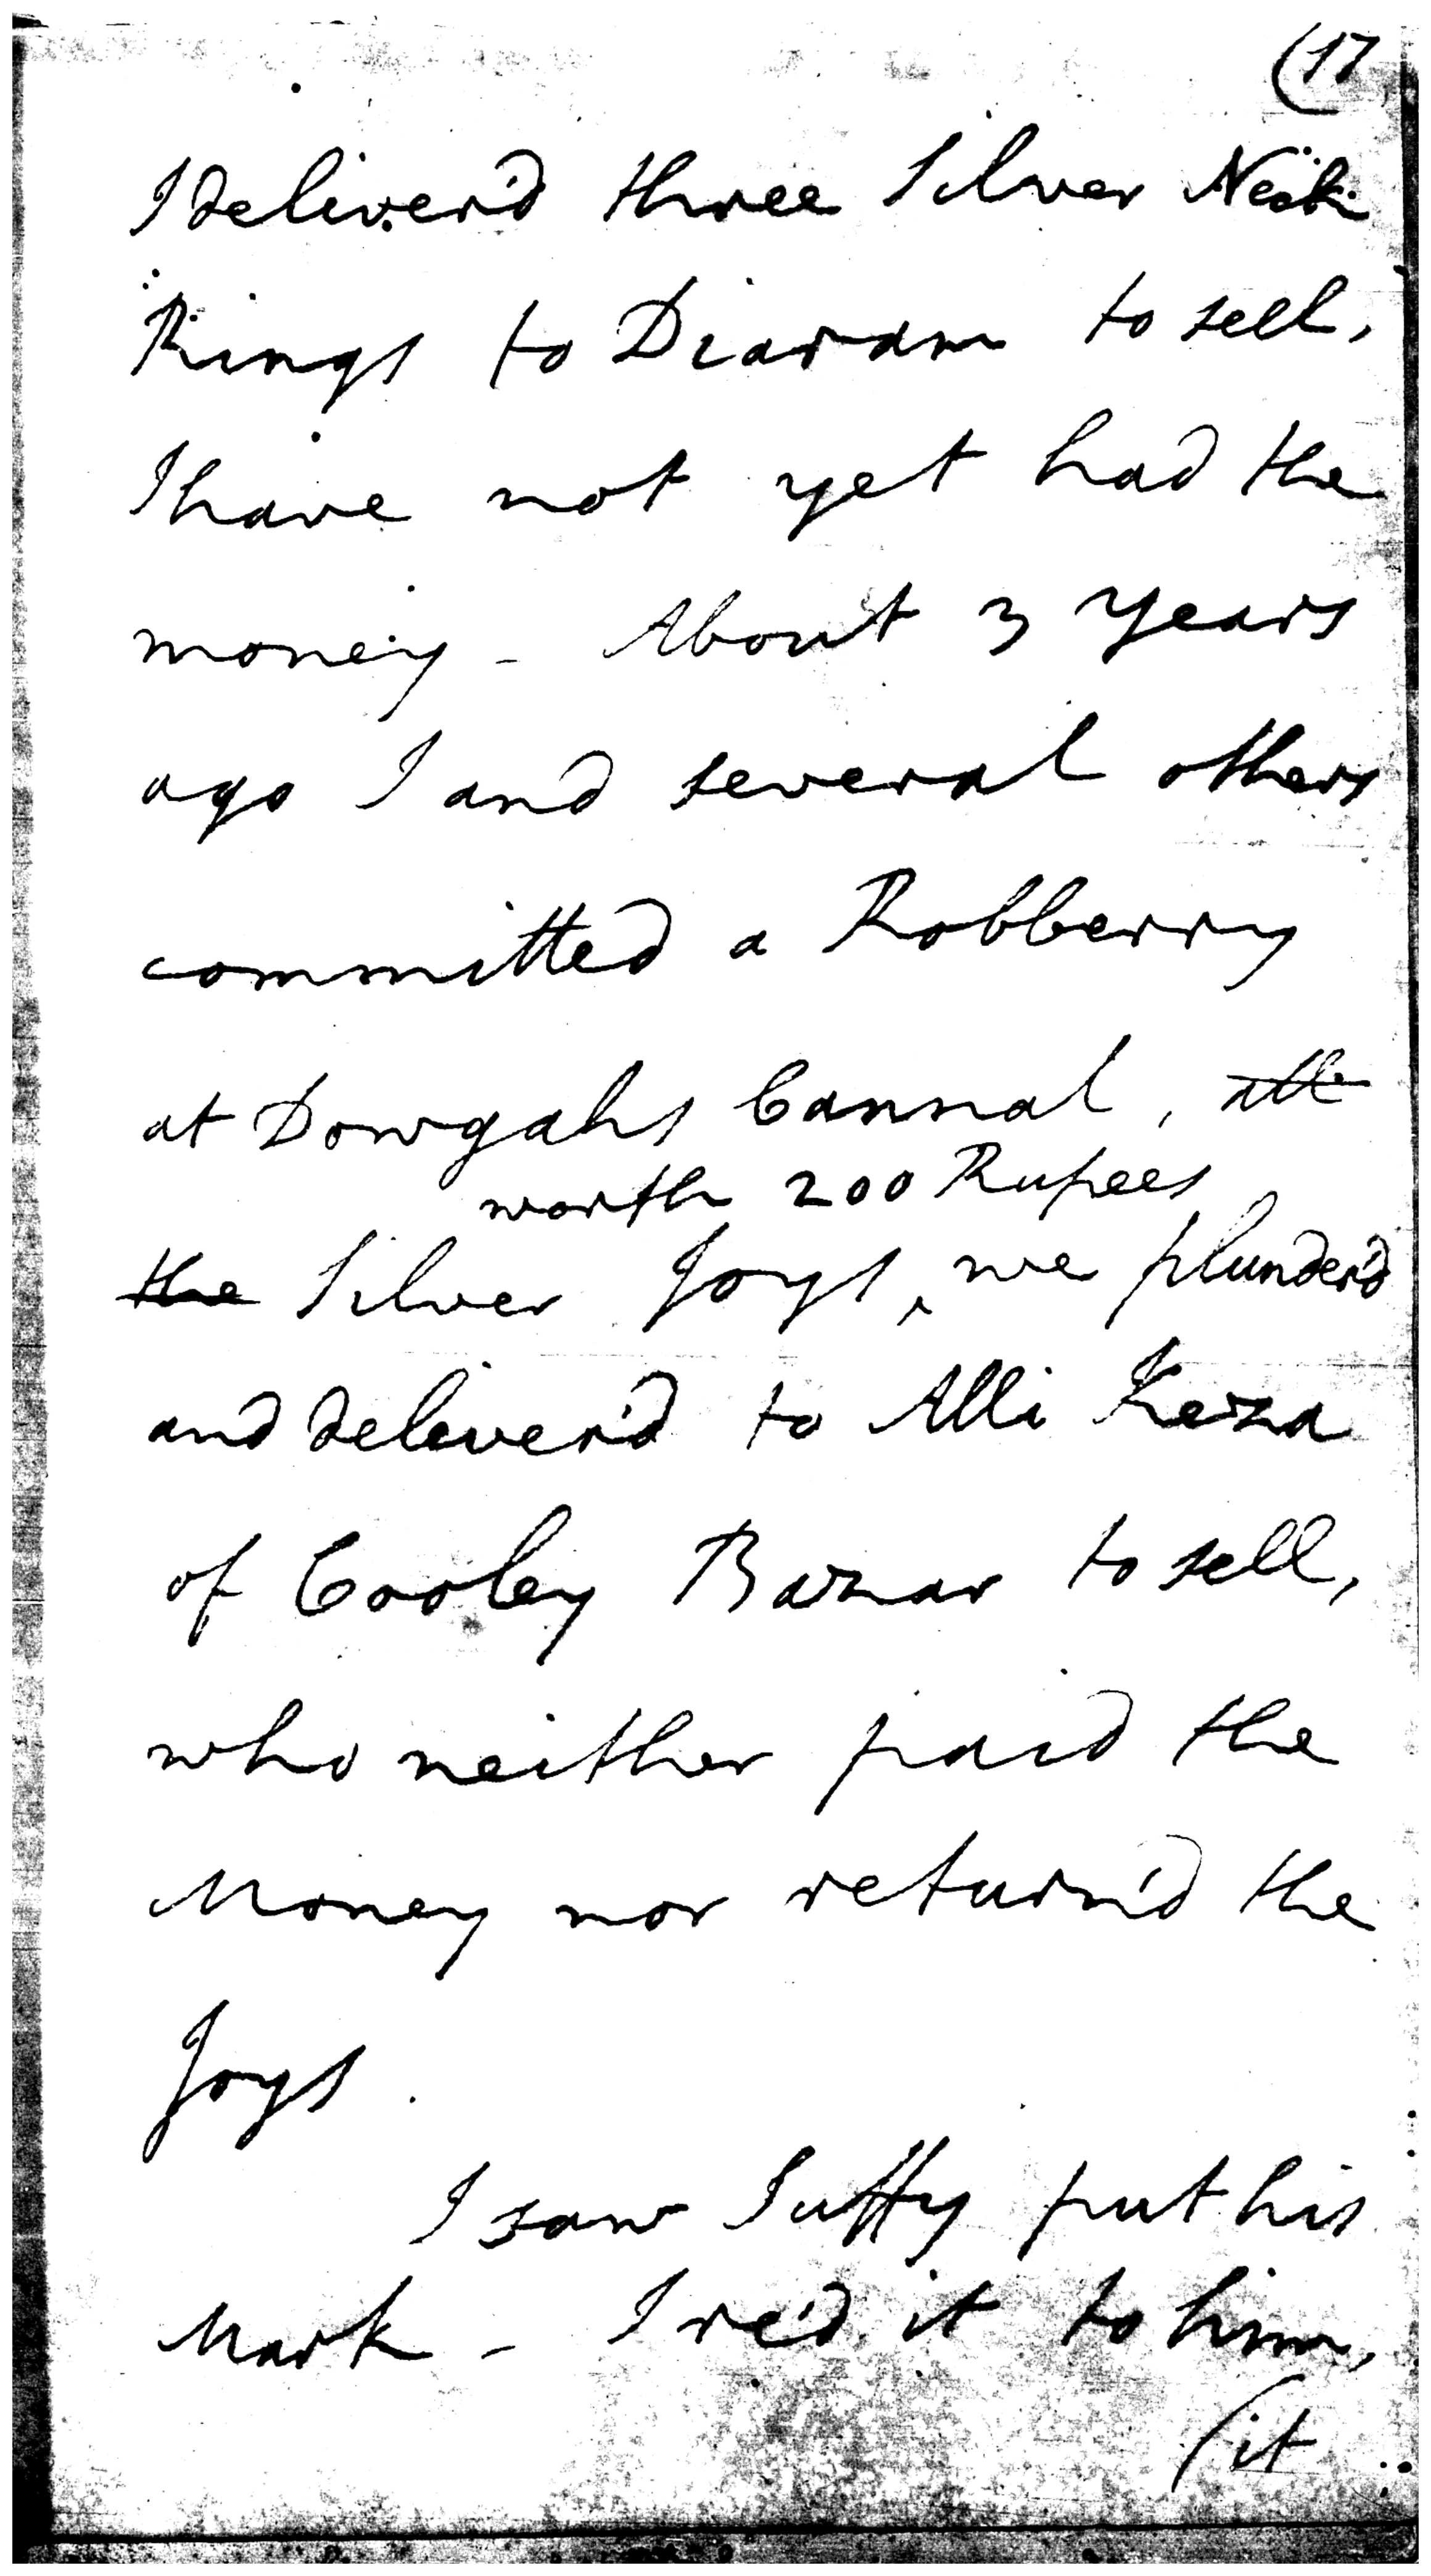 (17
I deliver'd three Silver Neck
Rings to Diaram to sell,
I have not yet had the
money - About 3 Years
ago I and several others
committed a Robberry
at Dowgahs Cannal, all
worth 200 Rupees
the Silver Joys ‸ we plunder'd
and deliver'd to Alli Reza
of Cooley Bazar to sell,
who neither paid the
Money nor return'd the
Joys.
I saw Suffy put his
Mark - I re'd it to him,
(it